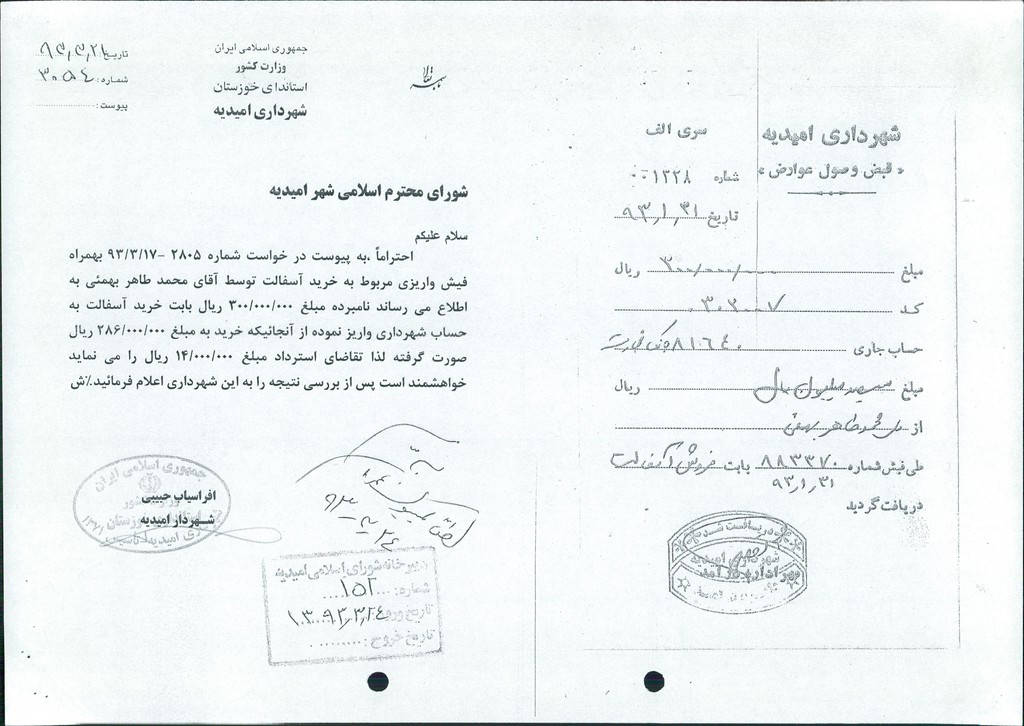 باسمه تعالی
جمهوری اسلامی ایران
وزارت کشور
استاندای خوزستان
شهرداری امیدیه
تاریخ: ۹۳,۳,۲۱
شماره: ۳۰۵۴
پیوست:
شورای محترم اسلامی شهر امیدیه
سلام علیکم
احتراماً ،به پیوست در خواست شماره ۲۸۰۵ -۹۳/۳/۱۷ بهمراه
فیش واریزی مربوط به خرید آسفالت توسط آقای محمد طاهر بهمئی به
اطلاع می رساند نامبرده مبلغ ۳۰۰/۰۰۰/۰۰۰ ریال بابت خرید آسفالت به
حساب شهرداری واریز نموده از آنجائیکه خرید به مبلغ ۲۸۶/۰۰۰/۰۰۰ ریال
صورت گرفته لذا تقاضای استرداد مبلغ ۱۴/۰۰۰/۰۰۰ ریال را می نماید
خواهشمند است پس از بررسی نتیجه را به این شهرداری اعلام فرمائید.٪ش
افراسیاب حبیبی
شهردار امیدیه
جمهوری اسلامی ایران
دبیرخانه شورای اسلامی امیدیه
شماره: ۱۵۲
تاریخ ورود: ۹۳,۳,۲۴
تاریخ خروج:
شهرداری امیدیه
« قبض وصول عوارض »
سری الف
شماره ۰۰۱۳۲۸
تاریخ ۹۳,۱,۳۱
مبلغ ۳۰۰/۰۰۰/۰۰۰ ریال
کد ۳۰۲۰۰۷
حساب جاری ۸۱۶۴۰
مبلغ سیصد میلیون ریال ریال
از محمد طاهر بهمئی
طی فیش شماره ۸۸۳۳۷۰ بابت فروش آسفالت
۹۳,۱,۳۱
دریافت گردید